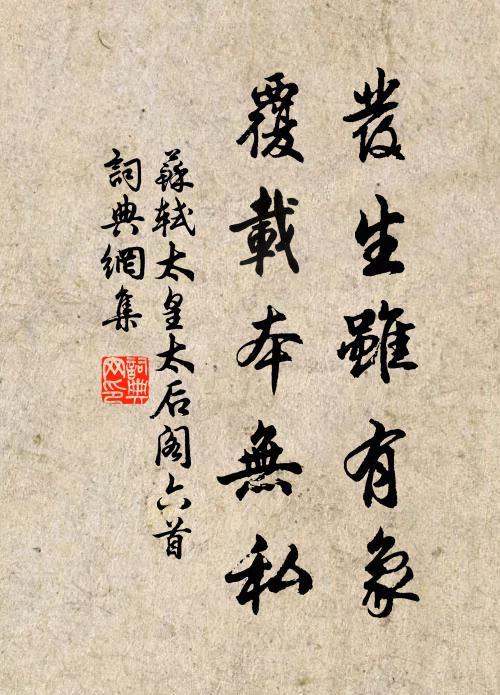 發生雖有象
覆載本無私
蘇軾太皇太后阁六首
詞典網集
詞典
网印